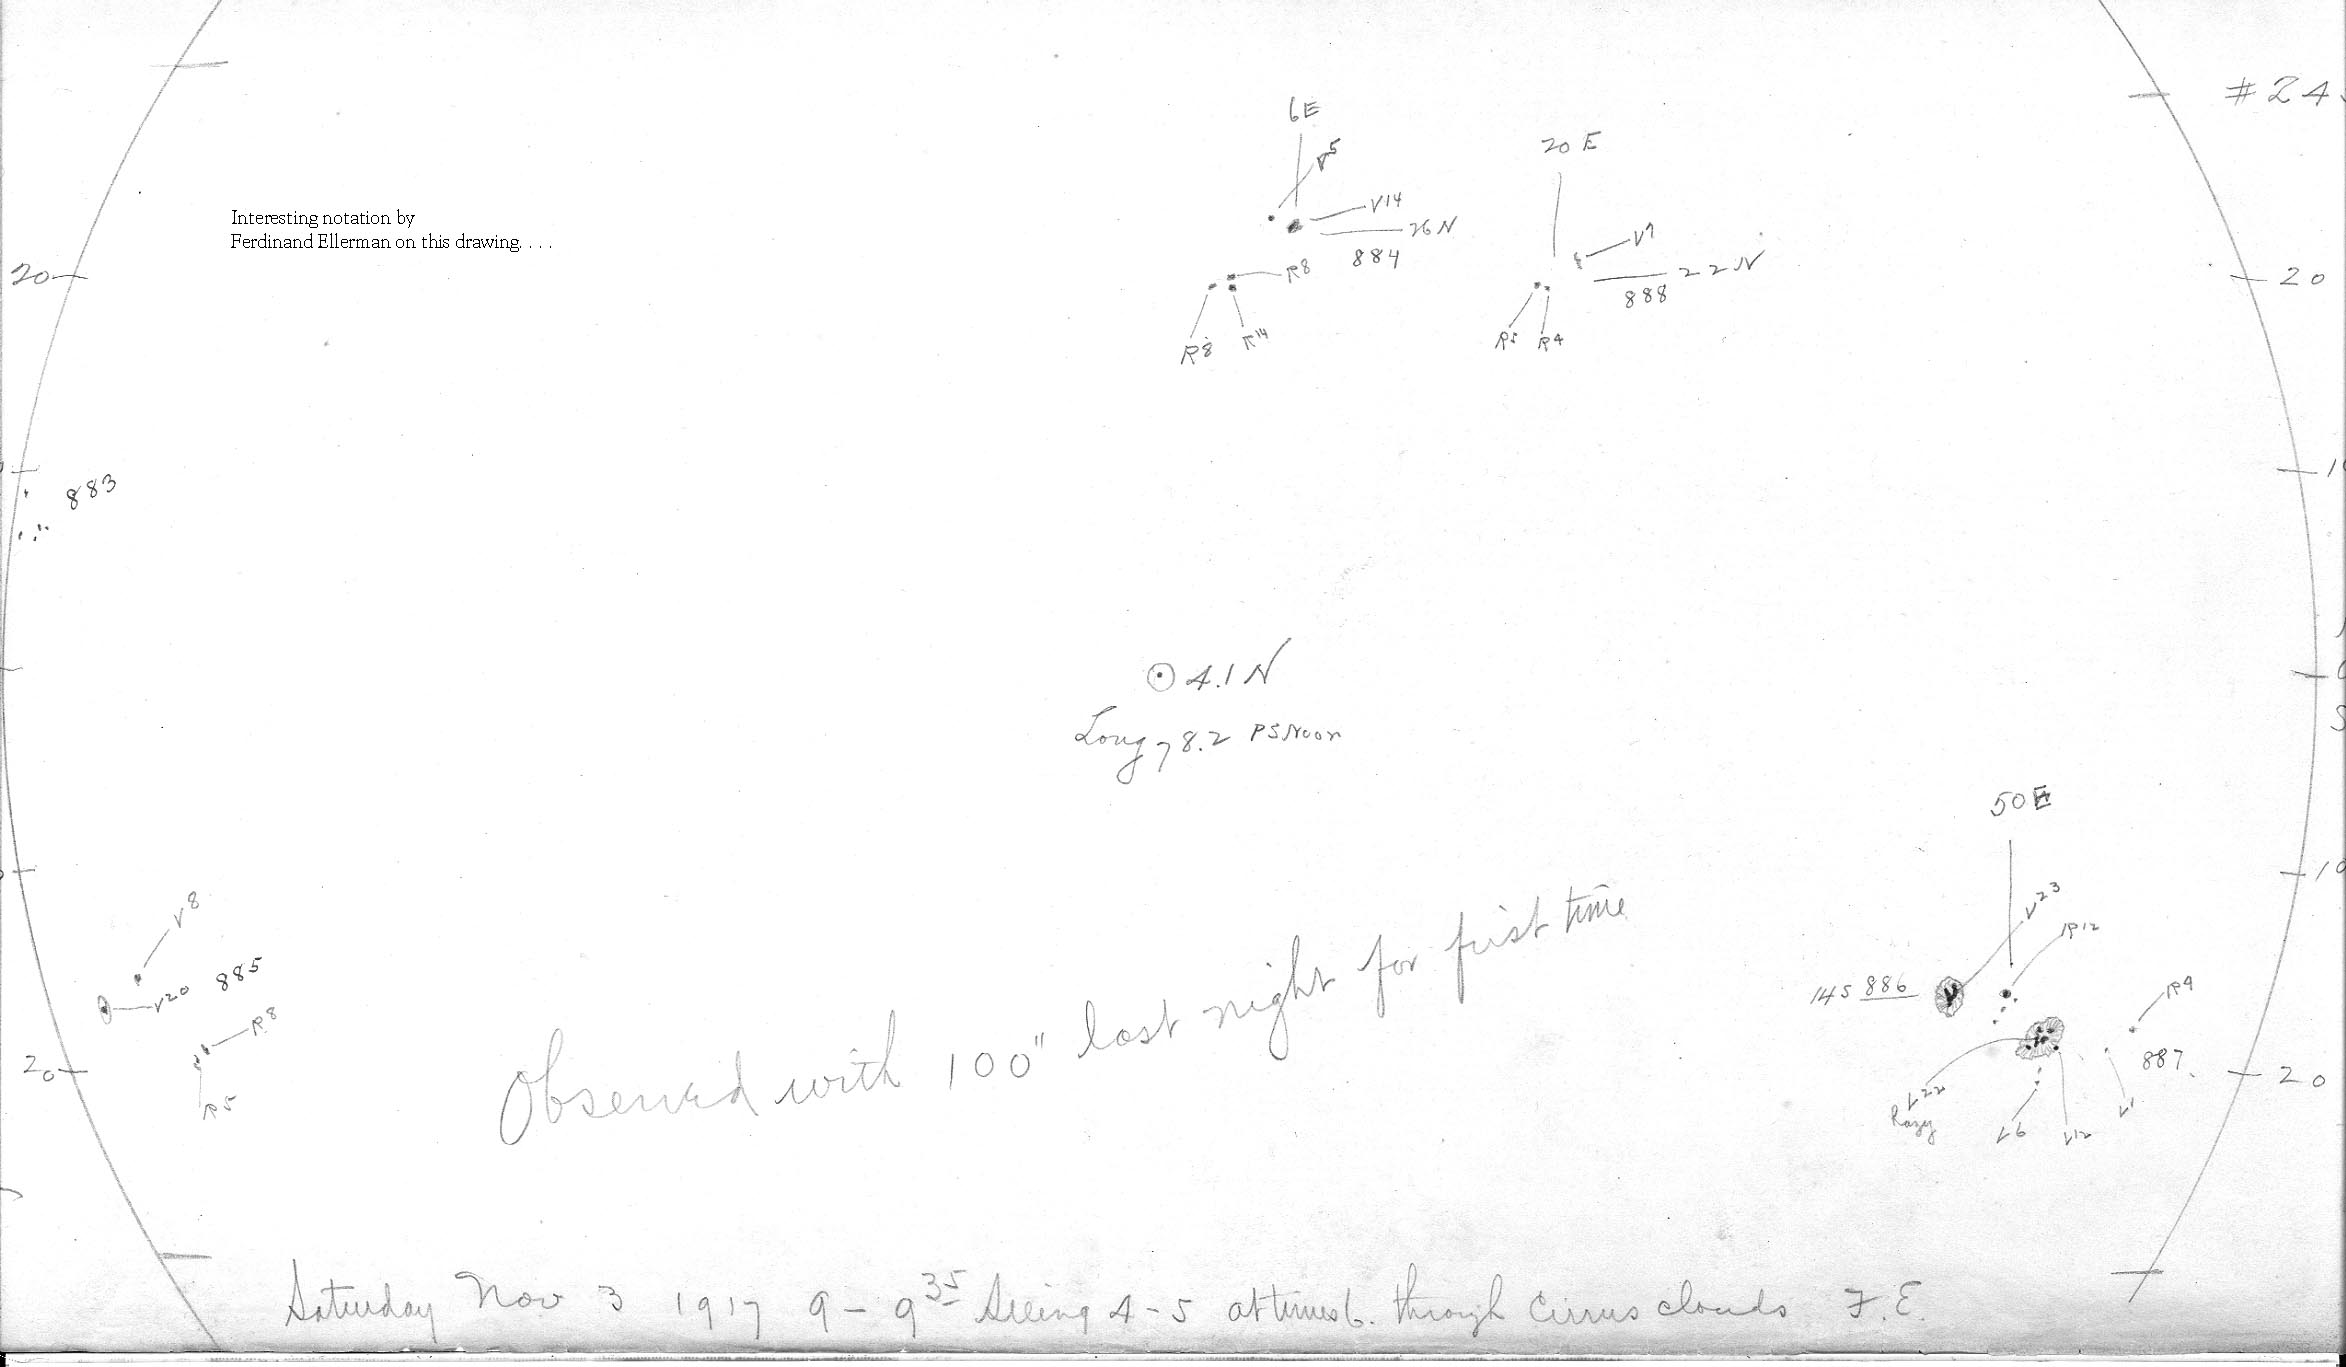 6E
V5
20 E
# 24
V14
26 N
884
V7
22 N
888
Interesting notation by
Ferdinand Ellerman on this drawing. . . .
20
R8
20
R8
R14
R5
R4
883
10
4.1 N
Long 78.2 PS Noon
50 E
V8
V23
R12
10
885
V20
R8
14S 886
R4
20
R5
Observed with 100" last night for first time
887
20
V22
V6
V12
V1
Saturday Nov 3 1917 9 - 9 35 Seeing 4-5 at times 6. through Cirrus clouds F.E.